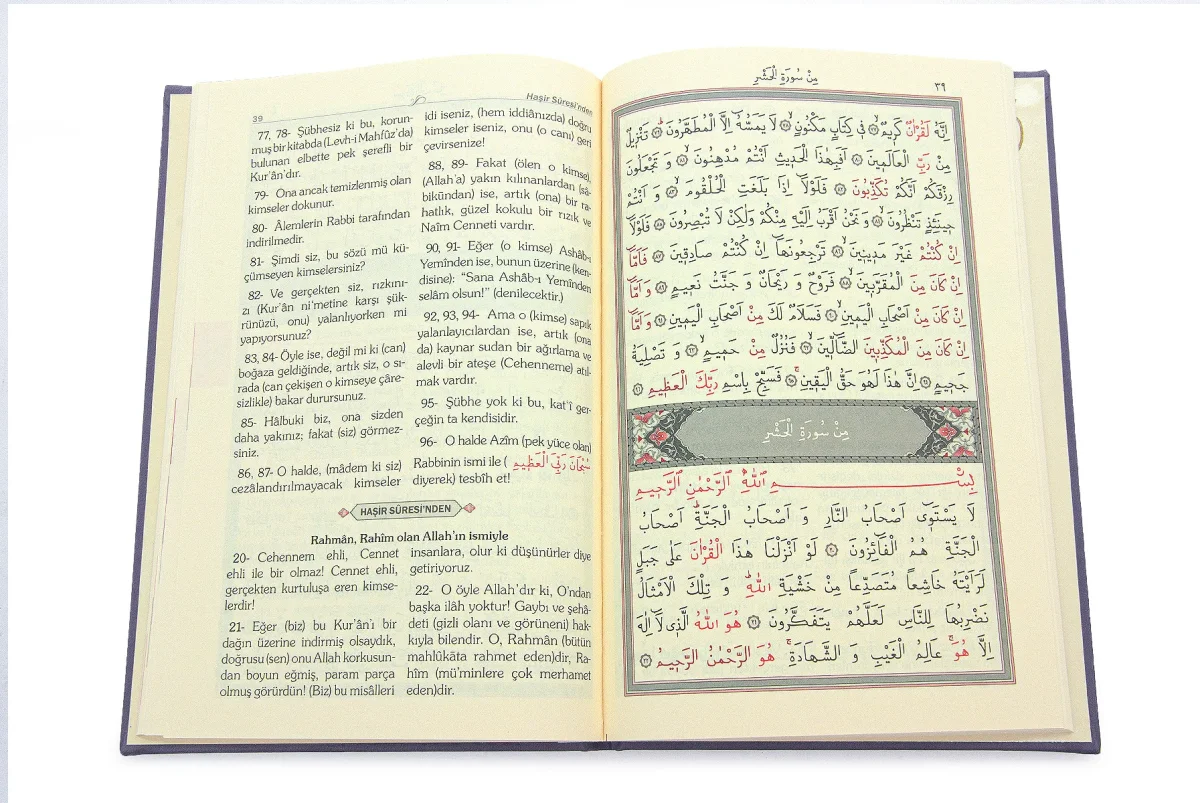 39
Haşir Sûresi'nden
77, 78- Şübhesiz ki bu, korun-
muş bir kitabda (Levh-i Mahfûz'da)
bulunan elbette pek şerefli bir
Kur'ân'dır.
79- Ona ancak temizlenmiş olan
kimseler dokunur.
80- Âlemlerin Rabbi tarafından
indirilmedir.
81- Şimdi siz, bu sözü mü kü-
çümseyen kimselersiniz?
82- Ve gerçekten siz, rızkını-
zı (Kur'ân ni'metine karşı şük-
rünüzü, onu) yalanlıyorken mi
yapıyorsunuz?
83, 84- Öyle ise, değil mi ki (can)
boğaza geldiğinde, artık siz, o sı-
rada (can çekişen o kimseye çâre-
sizlikle) bakar durursunuz.
85- Hâlbuki biz, ona sizden
daha yakınız; fakat (siz) görmez-
siniz.
86, 87- O halde, (mâdem ki siz)
cezâlandırılmayacak kimseler
idi iseniz, (hem iddianızda) doğru
kimseler iseniz, onu (o canı) geri
çevirsenize!
88, 89- Fakat (ölen o kimse),
(Allah'a) yakın kılınanlardan (sâ-
bikûndan) ise, artık (ona) bir ra-
hatlık, güzel kokulu bir rızık ve
Naîm Cenneti vardır.
90, 91- Eğer (o kimse) Ashâb-ı
Yemînden ise, bunun üzerine (ken-
disine): “Sana Ashâb-ı Yemînden
selâm olsun!” (denilecektir.)
92, 93, 94- Ama o (kimse) sapık
yalanlayıcılardan ise, artık (ona
da) kaynar sudan bir ağırlama ve
alevli bir ateşe (Cehenneme) atıl-
mak vardır.
95- Şübhe yok ki bu, kat'î ger-
çeğin ta kendisidir.
96- O halde Azîm (pek yüce olan)
Rabbinin ismi ile (سُبْحَانَ رَبِّيَ الْعَظِيمِ
diyerek) tesbîh et!
HAŞİR SÛRESİ'NDEN
Rahmân, Rahîm olan Allah'ın ismiyle
20- Cehennem ehli, Cennet
ehli ile bir olmaz! Cennet ehli,
gerçekten kurtuluşa eren kimse-
lerdir!
21- Eğer (biz) bu Kur'ân'ı bir
dağın üzerine indirmiş olsaydık,
doğrusu (sen) onu Allah korkusun-
dan boyun eğmiş, param parça
olmuş görürdün! (Biz) bu misâlleri
insanlara, olur ki düşünürler diye
getiriyoruz.
22- O öyle Allah'dır ki, O'ndan
başka ilâh yoktur! Gaybı ve şehâ-
deti (gizli olanı ve görüneni) hak-
kıyla bilendir. O, Rahmân (bütün
mahlûkāta rahmet eden)dir, Ra-
hîm (mü'minlere çok merhamet
eden)dir.
مِنْ سُورَةِ الْحَشْرِ
٣٩
اِنَّهُ لَقُرْاٰنٌ كَرِيمٌ ﴿٧٧﴾ فِى كِتَابٍ مَكْنُونٍ ﴿٧٨﴾ لَا يَمَسُّهُ اِلَّا الْمُطَهَّرُونَ ﴿٧٩﴾ تَنْزِيلٌ
مِنْ رَبِّ الْعَالَمِينَ ﴿٨٠﴾ اَفَبِهٰذَا الْحَدِيثِ اَنْتُمْ مُدْهِنُونَ ﴿٨١﴾ وَ تَجْعَلُونَ
رِزْقَكُمْ اَنَّكُمْ تُكَذِّبُونَ ﴿٨٢﴾ فَلَوْلَا اِذَا بَلَغَتِ الْحُلْقُومَ ﴿٨٣﴾ وَ اَنْتُمْ
حِينَئِذٍ تَنْظُرُونَ ﴿٨٤﴾ وَ نَحْنُ اَقْرَبُ اِلَيْهِ مِنْكُمْ وَلٰكِنْ لَا تُبْصِرُونَ ﴿٨٥﴾ فَلَوْلَا
اِنْ كُنْتُمْ غَيْرَ مَدِينِينَ ﴿٨٦﴾ تَرْجِعُونَهَا اِنْ كُنْتُمْ صَادِقِينَ ﴿٨٧﴾ فَاَمَّا
اِنْ كَانَ مِنَ الْمُقَرَّبِينَ ﴿٨٨﴾ فَرَوْحٌ وَ رَيْحَانٌ وَ جَنَّتُ نَعِيمٍ ﴿٨٩﴾ وَ اَمَّا
اِنْ كَانَ مِنْ اَصْحَابِ الْيَمِينِ ﴿٩٠﴾ فَسَلَامٌ لَكَ مِنْ اَصْحَابِ الْيَمِينِ ﴿٩١﴾ وَ اَمَّا
اِنْ كَانَ مِنَ الْمُكَذِّبِينَ الضَّالِّينَ ﴿٩٢﴾ فَنُزُلٌ مِنْ حَمِيمٍ ﴿٩٣﴾ وَ تَصْلِيَةُ
جَحِيمٍ ﴿٩٤﴾ اِنَّ هٰذَا لَهُوَ حَقُّ الْيَقِينِ ﴿٩٥﴾ فَسَبِّحْ بِاسْمِ رَبِّكَ الْعَظِيمِ ﴿٩٦﴾
مِنْ سُورَةِ الْحَشْرِ
بِسْمِ اللّٰهِ الرَّحْمٰنِ الرَّحِيمِ
لَا يَسْتَوِى اَصْحَابُ النَّارِ وَ اَصْحَابُ الْجَنَّةِ اَصْحَابُ
الْجَنَّةِ هُمُ الْفَائِزُونَ ﴿٢٠﴾ لَوْ اَنْزَلْنَا هٰذَا الْقُرْاٰنَ عَلٰى جَبَلٍ
لَرَاَيْتَهُ خَاشِعًا مُتَصَدِّعًا مِنْ خَشْيَةِ اللّٰهِ وَ تِلْكَ الْاَمْثَالُ
نَضْرِبُهَا لِلنَّاسِ لَعَلَّهُمْ يَتَفَكَّرُونَ ﴿٢١﴾ هُوَ اللّٰهُ الَّذِى لَا اِلٰهَ
اِلَّا هُوَ عَالِمُ الْغَيْبِ وَ الشَّهَادَةِ هُوَ الرَّحْمٰنُ الرَّحِيمُ ﴿٢٢﴾